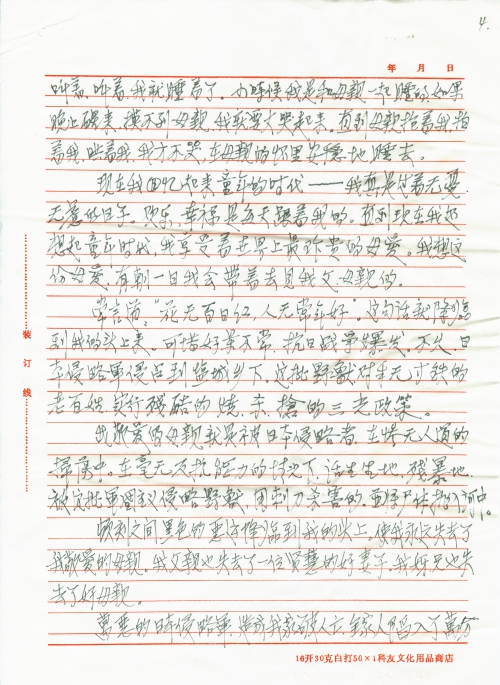 4.
年 月 日
叫着,叫着,我就睡着了。小時候我是和母親一起睡的,如果
晚上醒来,摸不到母親,我就要大哭起来。直到母親抱着我,拍
着我,哄着我,我才不哭,在母親的怀里安穩地睡去。
现在我回忆起来童年的时代——我真是过着无憂
无慮的日子。欢乐,幸福是天天跟着我的。直到现在我仍
想起童年时代,我享受着世界上最珍贵的母爱。我想这
份母爱,有朝一日我会带着去見我父母親的。
常言道,"花无百日红,人无常年好"。这句话就降臨
到我们头上来,可惜好景不常,抗日战爭爆发,不久日
本侵略軍侵占到鹽城乡下,这批野獸对手无寸铁的
老百姓,实行残酷的燒、杀、搶的三光政策。
我敬爱的母親,就是被日本侵略者,在惨无人道的
中,在毫无反抗能力的情况下,活生生地,残暴地,
被这批軍国主义侵略野獸,用刺刀杀害的,并将尸体抛入河中。
顿刻之间黑色的悪运降臨到我的头上。使我永远失去了
我敬爱的母親。我父親也失去了一位賢慧的好妻子,我妹兄也失
去了好母親。
萬悪的日本侵略軍,害得我家破人亡,全家人陷入了萬分
装
订
线
16开30克白打50×1科友文化用品商店